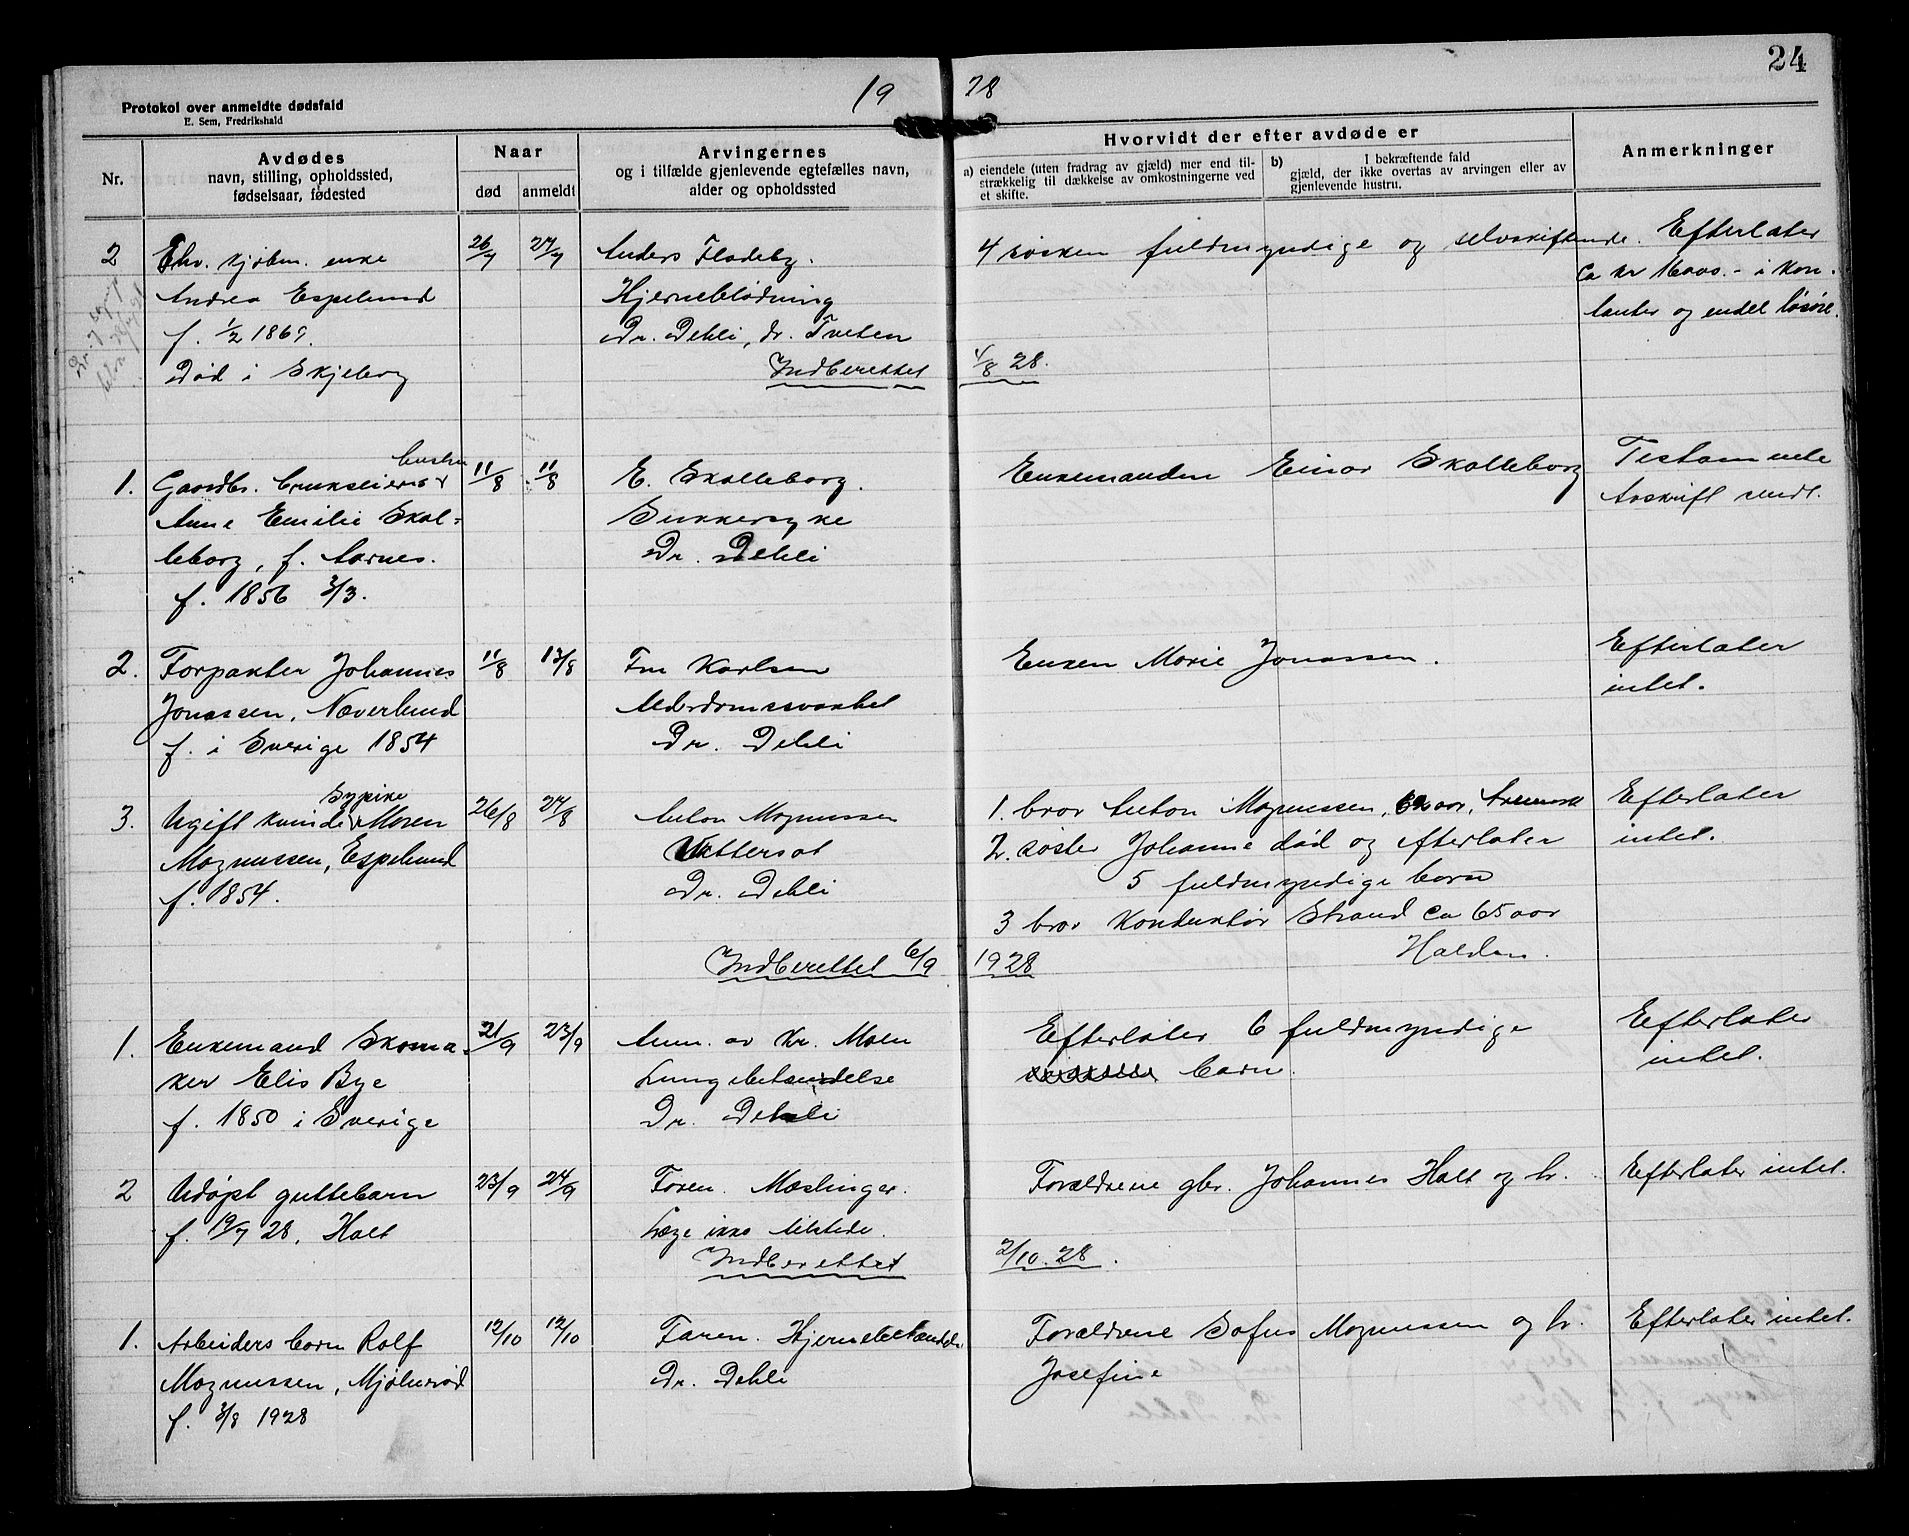 24
19 28
Protokol over anmeldte dødsfald
E. Sem, Fredrikshald
Nr.
Avdødes
navn, stilling, opholdssted,
fødselsaar, fødested
Naar
død
anmeldt
Arvingernes
og i tilfælde gjenlevende egtefælles navn,
alder og opholdssted
Hvorvidt der efter avdøde er
a) eiendele (uten fradrag av gjæld) mer end til-
strækkelig til dækkelse av omkostningerne ved
et skifte.
b) I bekræftende fald
gjæld, der ikke overtas av arvingen eller av
gjenlevende hustru.
Anmerkninger
2 Ehv. kjøbm. enke
Andrea Espelund
f. 1/2 1869.
Død i Skjeberg
26/7
27/7
Anders Fladeby.
Hjerneblødning
Dr. Dehli, dr. Tveten
Indberettet 4/8 28.
4 søsken fuldmyndige og selvskiftende. Efterlater
ca kr 16000.- i kon-
tanter og endel løsøre.
1. Gaardbr. brukseiers hustru
Anne Emilie Skol-
leborg, f. Aarnes.
f. 1856 3/3.
11/8
11/8
E. Skolleborg.
Sukkersyke
Dr. Dehli
Enkemanden Einar Skolleborg
Testamente
Avskrift sendt.
2. Forpakter Johannes
Jonassen, Næverlund
f. i Sverige 1854
11/8
13/8
Fru Karlsen
Alderdomssvakhet
Dr. Dehli
Enken Marie Jonassen.
Efterlater
intet.
3. Ugift kvinde sypike Maren
Magnussen, Espelund
f. 1854.
26/8
27/8
Anton Magnussen
Vattersot
Dr. Dehli
Indberettet 6/9 1928
1. bror Anton Magnussen, aar,
2. søster Johanne død og efterlater
5 fuldmyndige barn
3 bror Konduktør Strand ca 65 aar
Halden.
Efterlater
intet.
1. Enkemand Skoma-
ker Elis Bye
f. 1850 i Sverige
21/9
23/9
Anm. av Kr. Moen
Lungebetændelse
Dr. Dehli
Efterlater 6 fuldmyndige
barn.
Efterlater
intet.
2 Udøpt guttebarn
f. 19/7 28, Holt
23/9
24/9
Faren. Mæslinger.
Læge ikke tilstede.
Indberettet 2/10.28.
Forældrene gbr. Johannes Holt og h.
Efterlater intet.
1. Arbeiders barn Rolf
Magnussen, Mjølnerød
f. 3/8 1928
12/10
12/10
Faren. Hjernebetændelse
Dr. Dehli
Forældrene Sofus Magnussen og h.
Josefine
Efterlater intet.